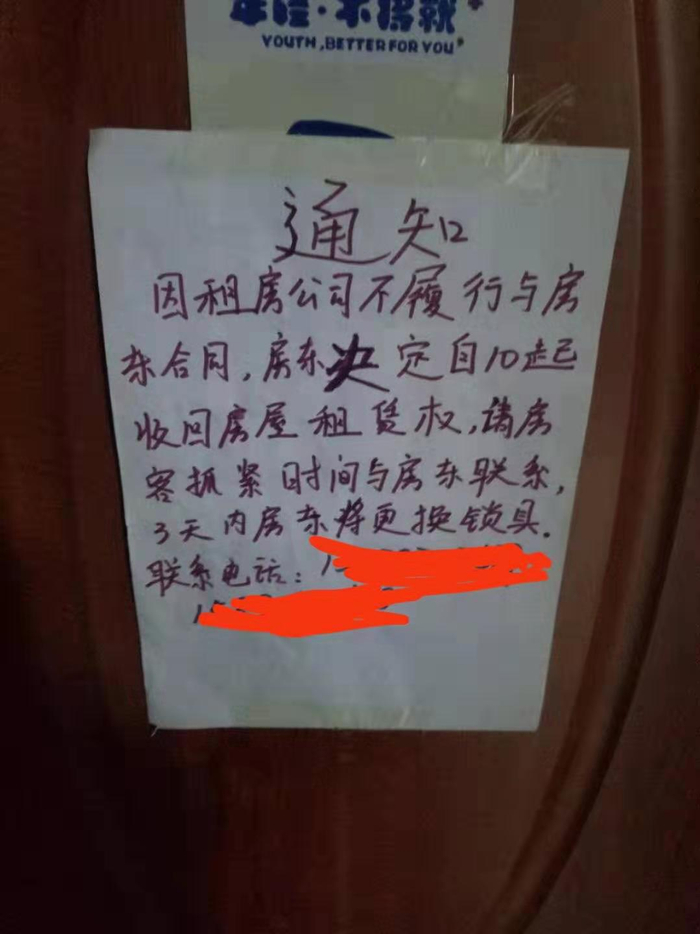 年轻·不将就
YOUTH, BETTER FOR YOU
通知
因租房公司不履行与房
东合同,房东决定自10起
收回房屋租赁权,请房
客抓紧时间与房东联系,
3天内房东将更换锁具.
联系电话: